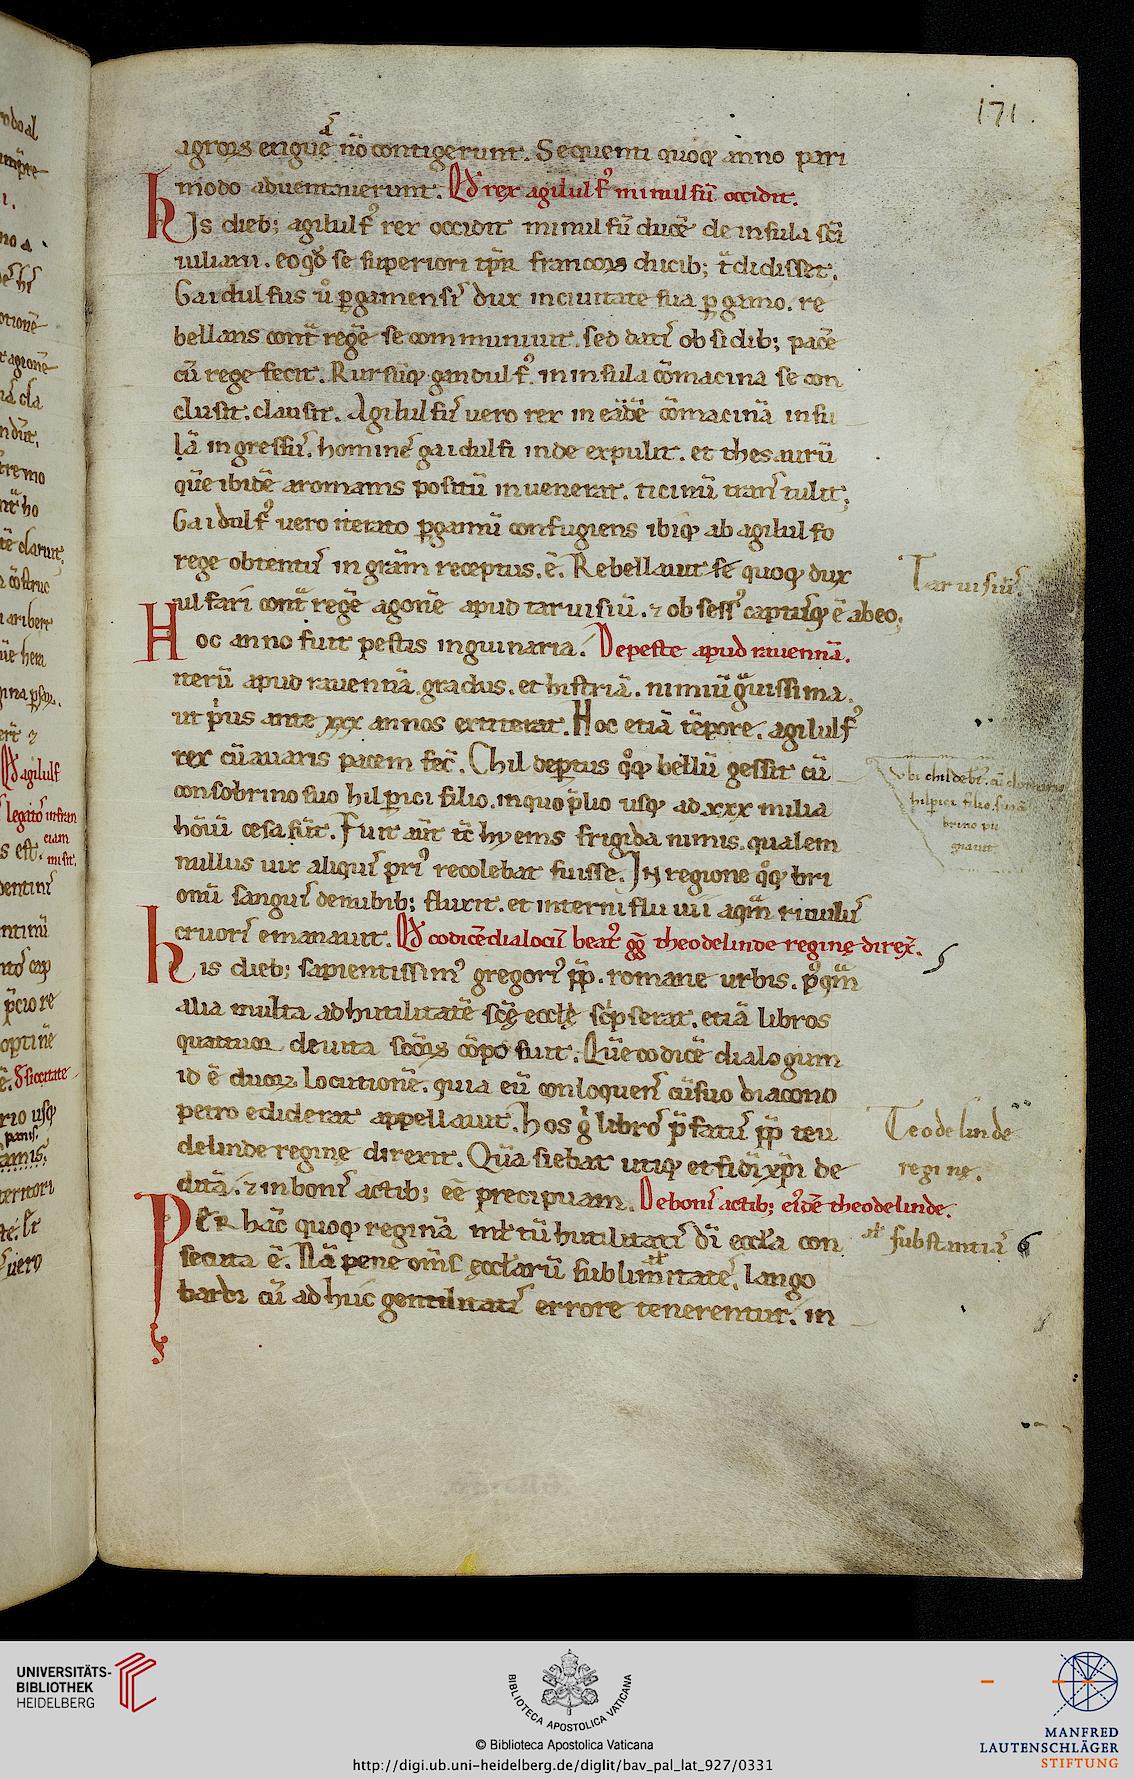 171.
agroꝝ exiguē nō contigerunt. Sequenti quoq; anno pari
modo aduentauerunt. Qd rex agilulf᾽ mimulfū occidit.
hIs dieb; agilulf᾽ rex occidit mimulfū ducē de insula scī
iuliani. eo qd se superiori tp̄r francoꝝ ducib; t̄didisset.
Gaidulfus u̾ ꝑgamensis dux in ciuitate sua ꝑgamo. re
bellans cont̄ regē se communiuit. sed datis obsidib; pacē
cū rege fecit. Rursūq; gandulf᾽. in insula cōmacina se con
clusit. clausit. Agilulfus vero rex in eādē cōmacinā insu
lā ingressus. homines gaidulfi inde expulit. et thesaurū
quē ibidē aromanis positū inuenerat. ticinū transtulit;
Gaidulf᾽ uero iterato ꝑgamū confugiens ibiq; ab agilulfo
rege obtentus in grām receptus. ē. Rebellauit sē quoq; dux
ulfari cont̄ regē agonē apud taruisiū. ⁊ obsess᾽ captusq; ē abeo;
Hoc anno fuit pestis inguinaria. De peste apud rauennā.
iterū apud rauennā gradus. et histriā. nimiū g̾uissima.
ut p̾us ante xxx annos extiterat. Hoc etiā tēpore. agilulf᾽
rex cū auaris pacem fec̄. Childeꝑtus qq; bellū gessit cū
consobrino suo hilꝑici filio. in quo p̄lio usq; ad xxx milia
hōuī cesa sūt. Fuit aūt tc̄ hyems frigida nimis. qualem
nullus uix aliquis pri᾽ recolebat fuisse. In regione qq; bri
onū sanguis de nubib; fluxit. et inter ni fluuii aquā riuulus
cruoris emanauit. Qd codicē dialocū beat᾽ gg theodelinde regine direx̄.
his dieb; sapientissim᾽ gregori᾽ pp̄. romane urbis. p᾽quā
alia multa ad hutilitatē scę eccle scpserat. etiā libros
quattuor de uita scōꝝ cōposuit. Quē codicē dialogum
id ē duoꝝ locutionē. quia eū conloquens cū suo diacono
petro ediderat appellauit. hos g libros p̄fatus pp̄ teu
delinde regine direxit. Quā siebat utiq; et fidi xp̄i de
ditā. ⁊ in bonis actib; eē precipuam. De bonis actib; ei᾽dē theodelinde.
Per hāc quoq; reginā mltū hutilitatis dī eccla con
secuta ē. Nā pene om̄s ecclarū sublimitates. lango
bardi cū adhuc gentilitatis errore tenerentur. in
Taruisiū
Vbi childebt. cū
hilpici filio.
brino pu
gnauit
Teodelinde
regine.
al substantiā
UNIVERSITÄTS-
BIBLIOTHEK
HEIDELBERG
BIBLIOTECA APOSTOLICA VATICANA
© Biblioteca Apostolica Vaticana
http://digi.ub.uni-heidelberg.de/diglit/bav_pal_lat_927/0331
MANFRED
LAUTENSCHLÄGER
STIFTUNG